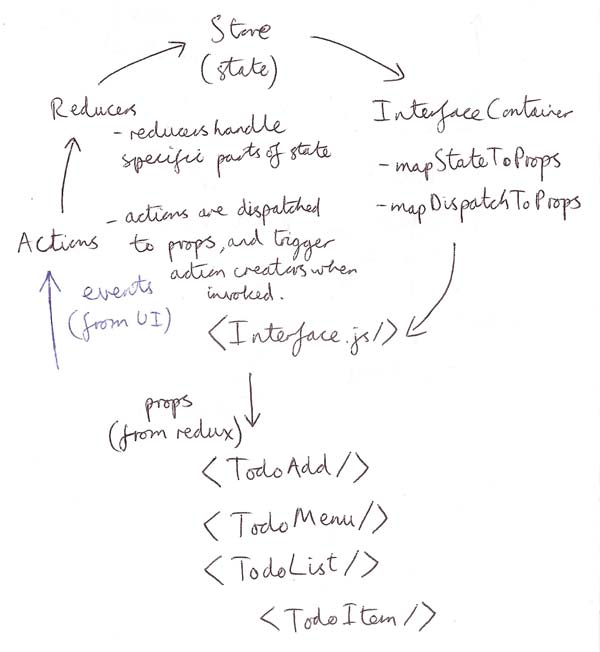 Store
(state)
Reducers
- reducers handle
specific parts of state
InterfaceContainer
- mapStateToProps
- mapDispatchToProps
Actions
- actions are dispatched
to props, and trigger
action creators when
invoked.
events
(from UI)
<Interface.js/>
props
(from redux)
<TodoAdd/>
<TodoMenu/>
<TodoList/>
<TodoItem/>